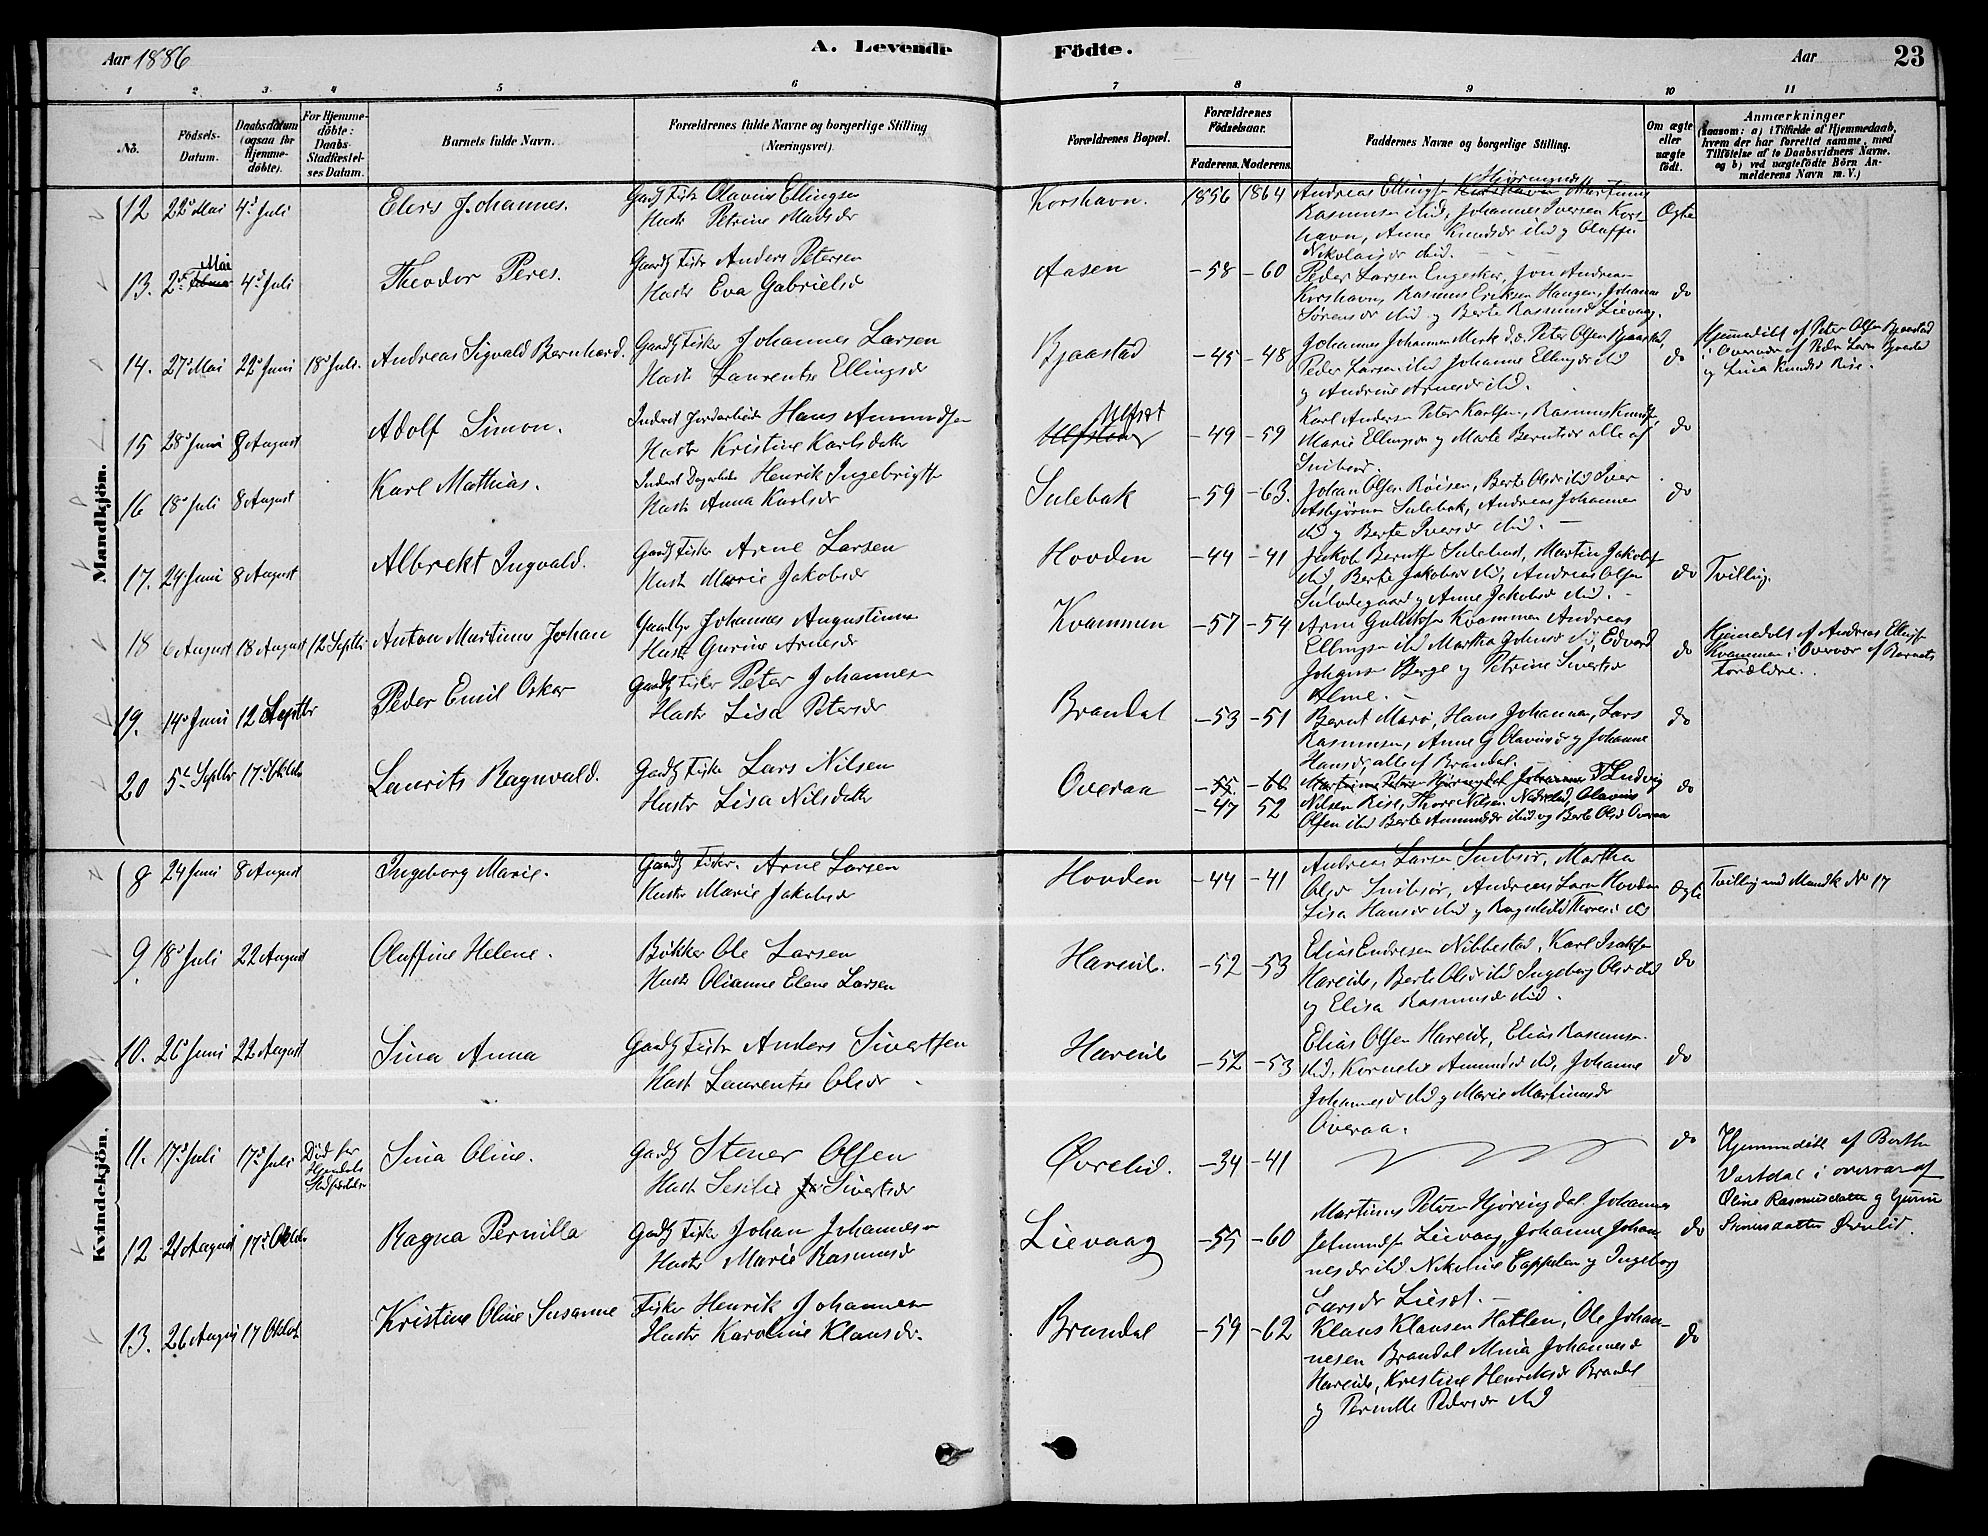 Aar 1886
A. Levende
Födte.
Aar
23
1
2
3
4
5
6
7
8
9
10
11
No.
Födsels-
Datum.
Daabsdatum
(ogsaa for
Hjemme-
döbte).
For Hjemme-
döbte:
Daabs-
Stadfæstel-
ses Datum.
Barnets fulde Navn.
Forældrenes fulde Navne og borgerlige Stilling
(Næringsvei).
Forældrenes Bopæl.
Forældrenes
Födselsaar.
Faderens.
Moderens.
Faddernes Navne og borgerlige Stilling.
Om ægte
eller
uægte
födt.
Anmærkninger
(saasom: a) i Tilfælde af Hjemmedaab,
hvem der har forrettet samme, med
Tilföielse af to Daabsvidners Navne,
og b) ved uægtefödte Börn An-
melderens Navn m. V.)
Mandkjön.
12
22 Mai
4 Juli
Johannes.
Gaardb Fisk Olavius Ellingsen
Hustr Petrine Madsdr
Korshavn.
1856
1864
Andreas Ellings Martinus
Rasmusen ibid, Johannes Iversen Kors-
havn, Anne Knudsdr ibid og Oluffe
Nikolaisdr ibid.
Ægte
13.
Mai
4 Juli
Theodor Peres.
Gaardb Fisk Anders Petersen
Hustr Eva Gabrielsd
Aasen
-58
-60
Peder Larsen Engeskar, Jon Andreas
Korshavn, Rasmus Eriksen Haugen, Johanne
Sørensdr ibid og Berte Rasmusd Lievaag.
do
14.
27 Mai
22 Juni
18 Juli.
Andreas Sigvald Bernhard.
Gaardb Fisker Johannes Larsen
Hustr Laurentse Ellingsdr
Bjaastad
-45
-48
Johannes Johannes Mork Peter Olsen Bjaastad,
Peder Larsen ibid Johanne Ellingsdr ibid
og Andrine Arnesdr ibid.
do
Hjemmedöbt af Peter Olsen Bjaastad
i Overvær af Peder Larsen Bjaastad
og Lina Knudsd Rise.
15
28 Juni
8 August
Adolf Simon.
Inderst Jordarbeider Hans Amundsen
Hustr Kristine Karlsdatter
Ulfset
-49
-59
Karl Anders Peter Karlsen, Rasmus Knuds
Marie Ellings og Marte Berntsdr alle af
Snibsør.
do
16
18 Juli
8 August
Karl Mathias.
Inderst Dagarbeider Henrik Ingebrigts
Hustr Anna Karlsdr
Sulebak
-59
-63.
Johan Olsen Röisen, Berte Olsdr ibid Iver
Asbjørns Sulebak, Andreas Johannes
ibid og Berte Iversdr ibid.
do
17.
24 Juni
8 August
Albrekt Ingvald.
Gaardb Fisker Arne Larsen
Hustr Marie Jakobsdr
Hovden
-44
-41
Jakob Bernts Sulebak, Martin Jakobs
ibid, Berte Jakobsdr ibid, Andreas Olsen
og Anne Jakobsdr ibid.
do
Tvilling.
18
6 August
18 August
12 Septbr
Anton Martinus Johan
Gaardbr Johannes Augustinus
Hustr Gurine Arnesdr
Kvammen
-57
-54
Arne Kvammen Andreas
Ellingsen ibid Martha Johnsdr ibid, Edvard
Johans Berge og Petrine Sivertsdr
Alme.
do
Hjemmedöbt af Andreas Ellings
Kvammen i Overvær af Barnets
Forældre.
19.
14 Juni
12 Septbr
Peder Emil Oskar
Gaardb Fisker Peter Johannesen
Hustr Lisa Petersdr
Brandal
-53
-51
Bernt Marö, Hans Johannes, Lars
Rasmusen, Anne G Olavusdr og Johanne
Hansdr, alle af Brandal.
do
20
5 Septbr
17 Oktbr
Laurits Ragnvald.
Gaardb Fisker Lars Nilsen
Hustr Lisa Nilsdatter
Overaa
-55
-60
-47
52
Martinus Petersen Hjöringdal Johannes Ludvig
Nilsen Rise, Thore Nilsen Nedrelid, Olavius
Olsen ibid Berte Amundsdr ibid og Berte Olsd Overaa
do
Kvindekjön.
8
24 Juni
8 August
Ingeborg Marie.
Gaardb Fisker. Arne Larsen
Hustr Marie Jakobsdr
Hovden
-44
-41
Andreas Larsen Snibsør, Martha
Olsdr Snibsør, Andreas Larsen Hovden
Lisa Hansdr ibid og Ragnhild ibid
Ægte
Tvilling med Mandk No 17
9.
18 Juli
22 August
Oluffine Helene.
Bökker Ole Larsen
Hustr Olianne Elene Larsen
Hareid.
-52
-53
Elias Endresen Nibbestad, Karl Isaksen
Hareide, Berte Olsdr ibid Ingeborg Olsdr ibid
og Elisa Rasmusdr ibid.
do
10.
26 Juni
22 August
Sina Anna
Gaardb Fisker Anders Sivertsen
Hustr Laurentse Olsdr
Hareid
-52
-53
Elias Olsen Hareide, Elias Rasmusen
ibid, Kornelie Amundsd ibid, Johanne
Johannesdr ibid og Marie Martinusdr
Overaa.
do
11.
17 Juli
17 Juli
Död før
Sina Oline.
Gaardb Stener Olsen
Hustr Sesilie Sivertsdr
Øvrelid.
-34
-41
do
Hjemmedöbt af Berthe
Vartdal i overvær af
Oline Rasmusdatter og
Øvrelid.
12
21 August
17 Oktbr
Ragna Pernilla
Gaardb Fisker Johan Johannesen
Hustr Marie Rasmusdr
Lievaag
-55
-60
Martinus Petersen Hjöringdal Johannes
Jetmunds Lievaag, Johanne Johan-
nesdr ibid Nikoline Cappelen og Ingeborg
Larsdr Lieset.
do
13.
26 August
17 Oktob
Kristine Oline Susanne
Fisker Henrik Johannesen
Hustr Karoline Klausdr.
Brandal
-59
-62
Klaus Klausen Hatlen, Ole Johan-
nesen Brandal Mina Johannesd
Hareide, Kristine Henriksdr Brandal
og Pernille Pedersdr ibid
do